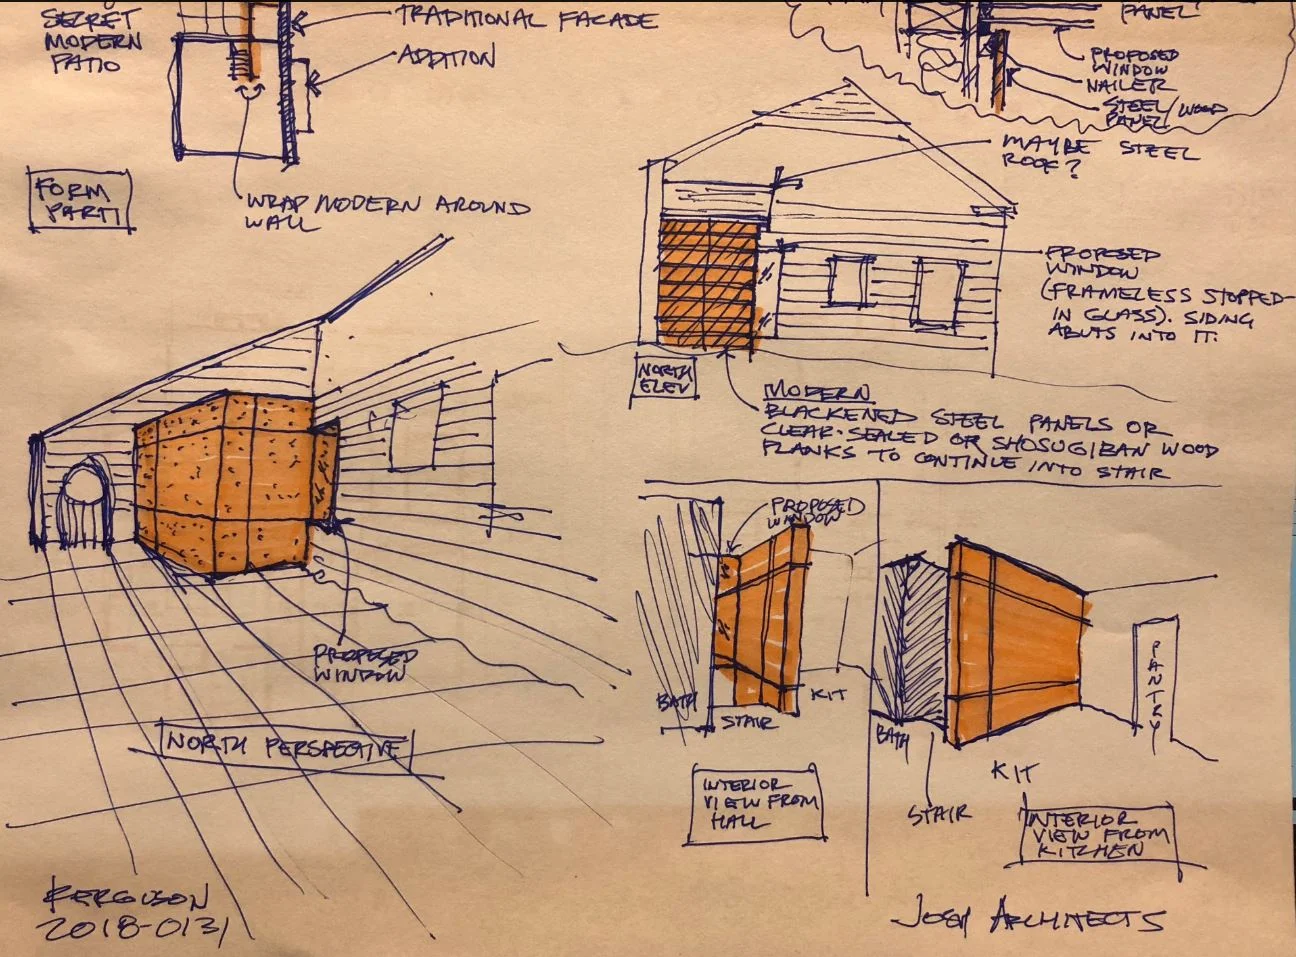 SECRET
MODERN
PATIO
TRADITIONAL FACADE
ADDITION
FORM
PARTI
WRAP MODERN AROUND
WALL
PANEL
PROPOSED
WINDOW
NAILER
STEEL/WOOD
PANEL
MAYBE STEEL
ROOF?
PROPOSED
WINDOW
(FRAMELESS STOPPED-
IN GLASS). SIDING
ABUTS INTO IT.
NORTH
ELEV
MODERN
BLACKENED STEEL PANELS OR
CLEAR-SEALED OR SHOSUGIBAN WOOD
PLANKS TO CONTINUE INTO STAIR
PROPOSED
WINDOW
NORTH PERSPECTIVE
PROPOSED
WINDOW
BATH
STAIR
KIT
INTERIOR
VIEW FROM
HALL
BATH
STAIR
KIT
PANTRY
INTERIOR
VIEW FROM
KITCHEN
FERGUSON
2018-0131
ARCHITECTS